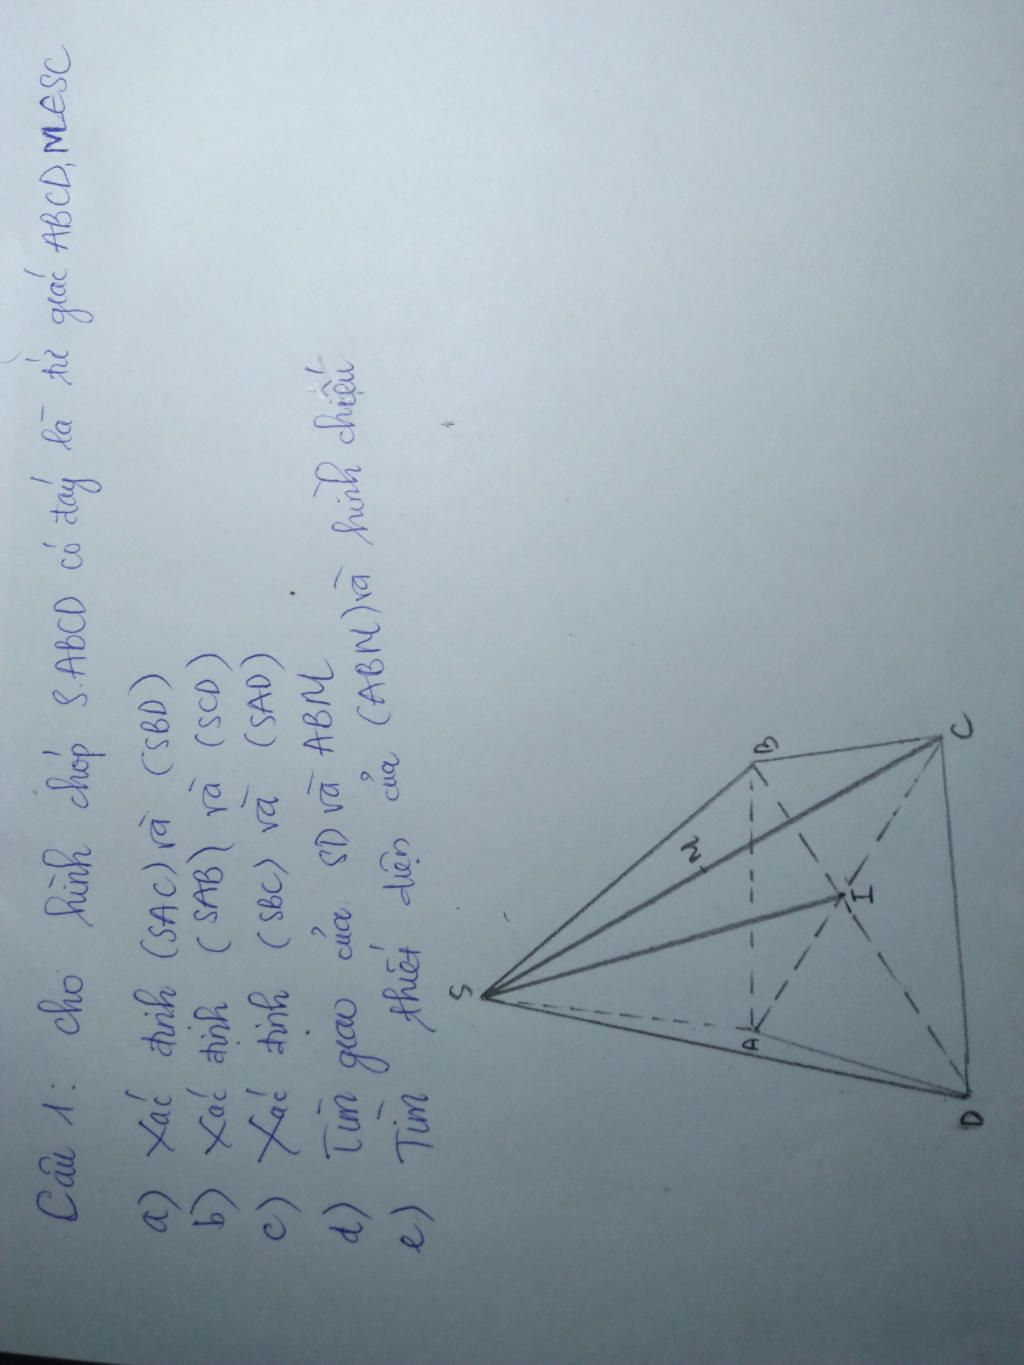 Câu 1: cho hình chóp S.ABCD có đáy là tứ giác ABCD, M∈SC
a) Xác định (SAC) và (SBD)
b) Xác định (SAB) và (SCD)
c) Xác định (SBC) và (SAD)
d) Tìm giao của SD và ABM
e) Tìm thiết diện của (ABM) và hình chiếu
S
M
A
B
I
D
C